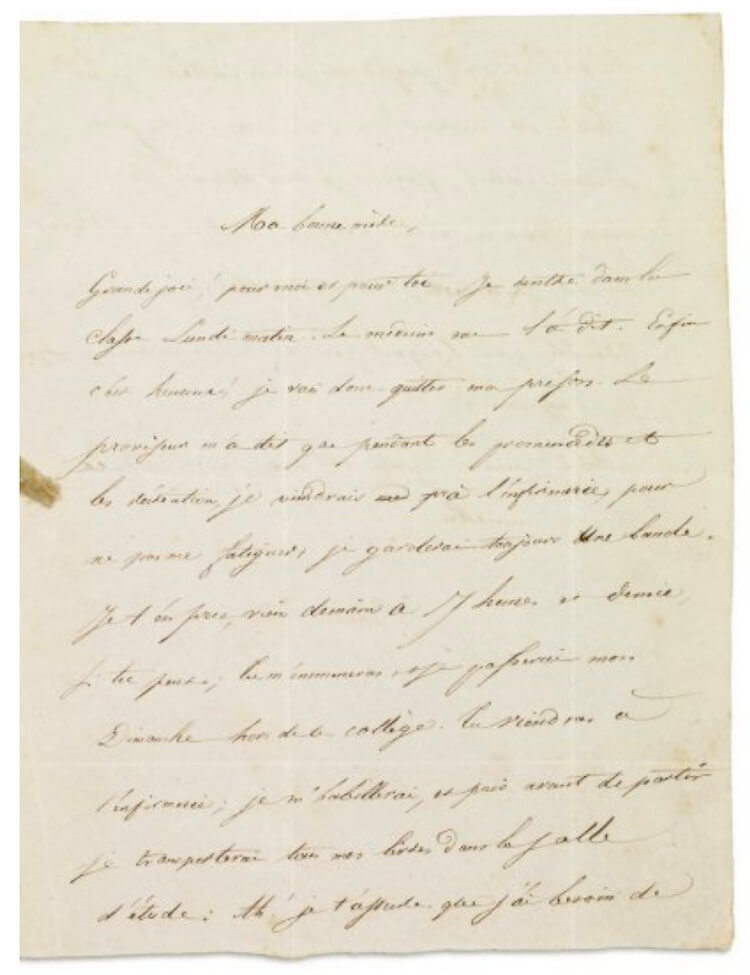 Ma bonne mère,
Grande joie! pour moi et pour toi Je rentre dans la
classe Lundi matin. Le médecin me l'a dit. Enfin
heureux! je vais donc quitter ma prison. Le
proviseur m'a dit que pendant les promenades et
les récréations, je viendrais à l'infirmerie, pour
ne pas me fatiguer, je garderai toujours une bande.
Je t'en prie, viens demain à 7 heures et demie,
si tu peux; tu m'emmeneras et je passerai mon
Dimanche hors de le collège. Tu viendras à
l'infirmerie; je m'habillerai, et puis avant de partir
je transporterai tous mes livres dans la salle
d'étude: Ah! je t'assure que j'ai besoin de